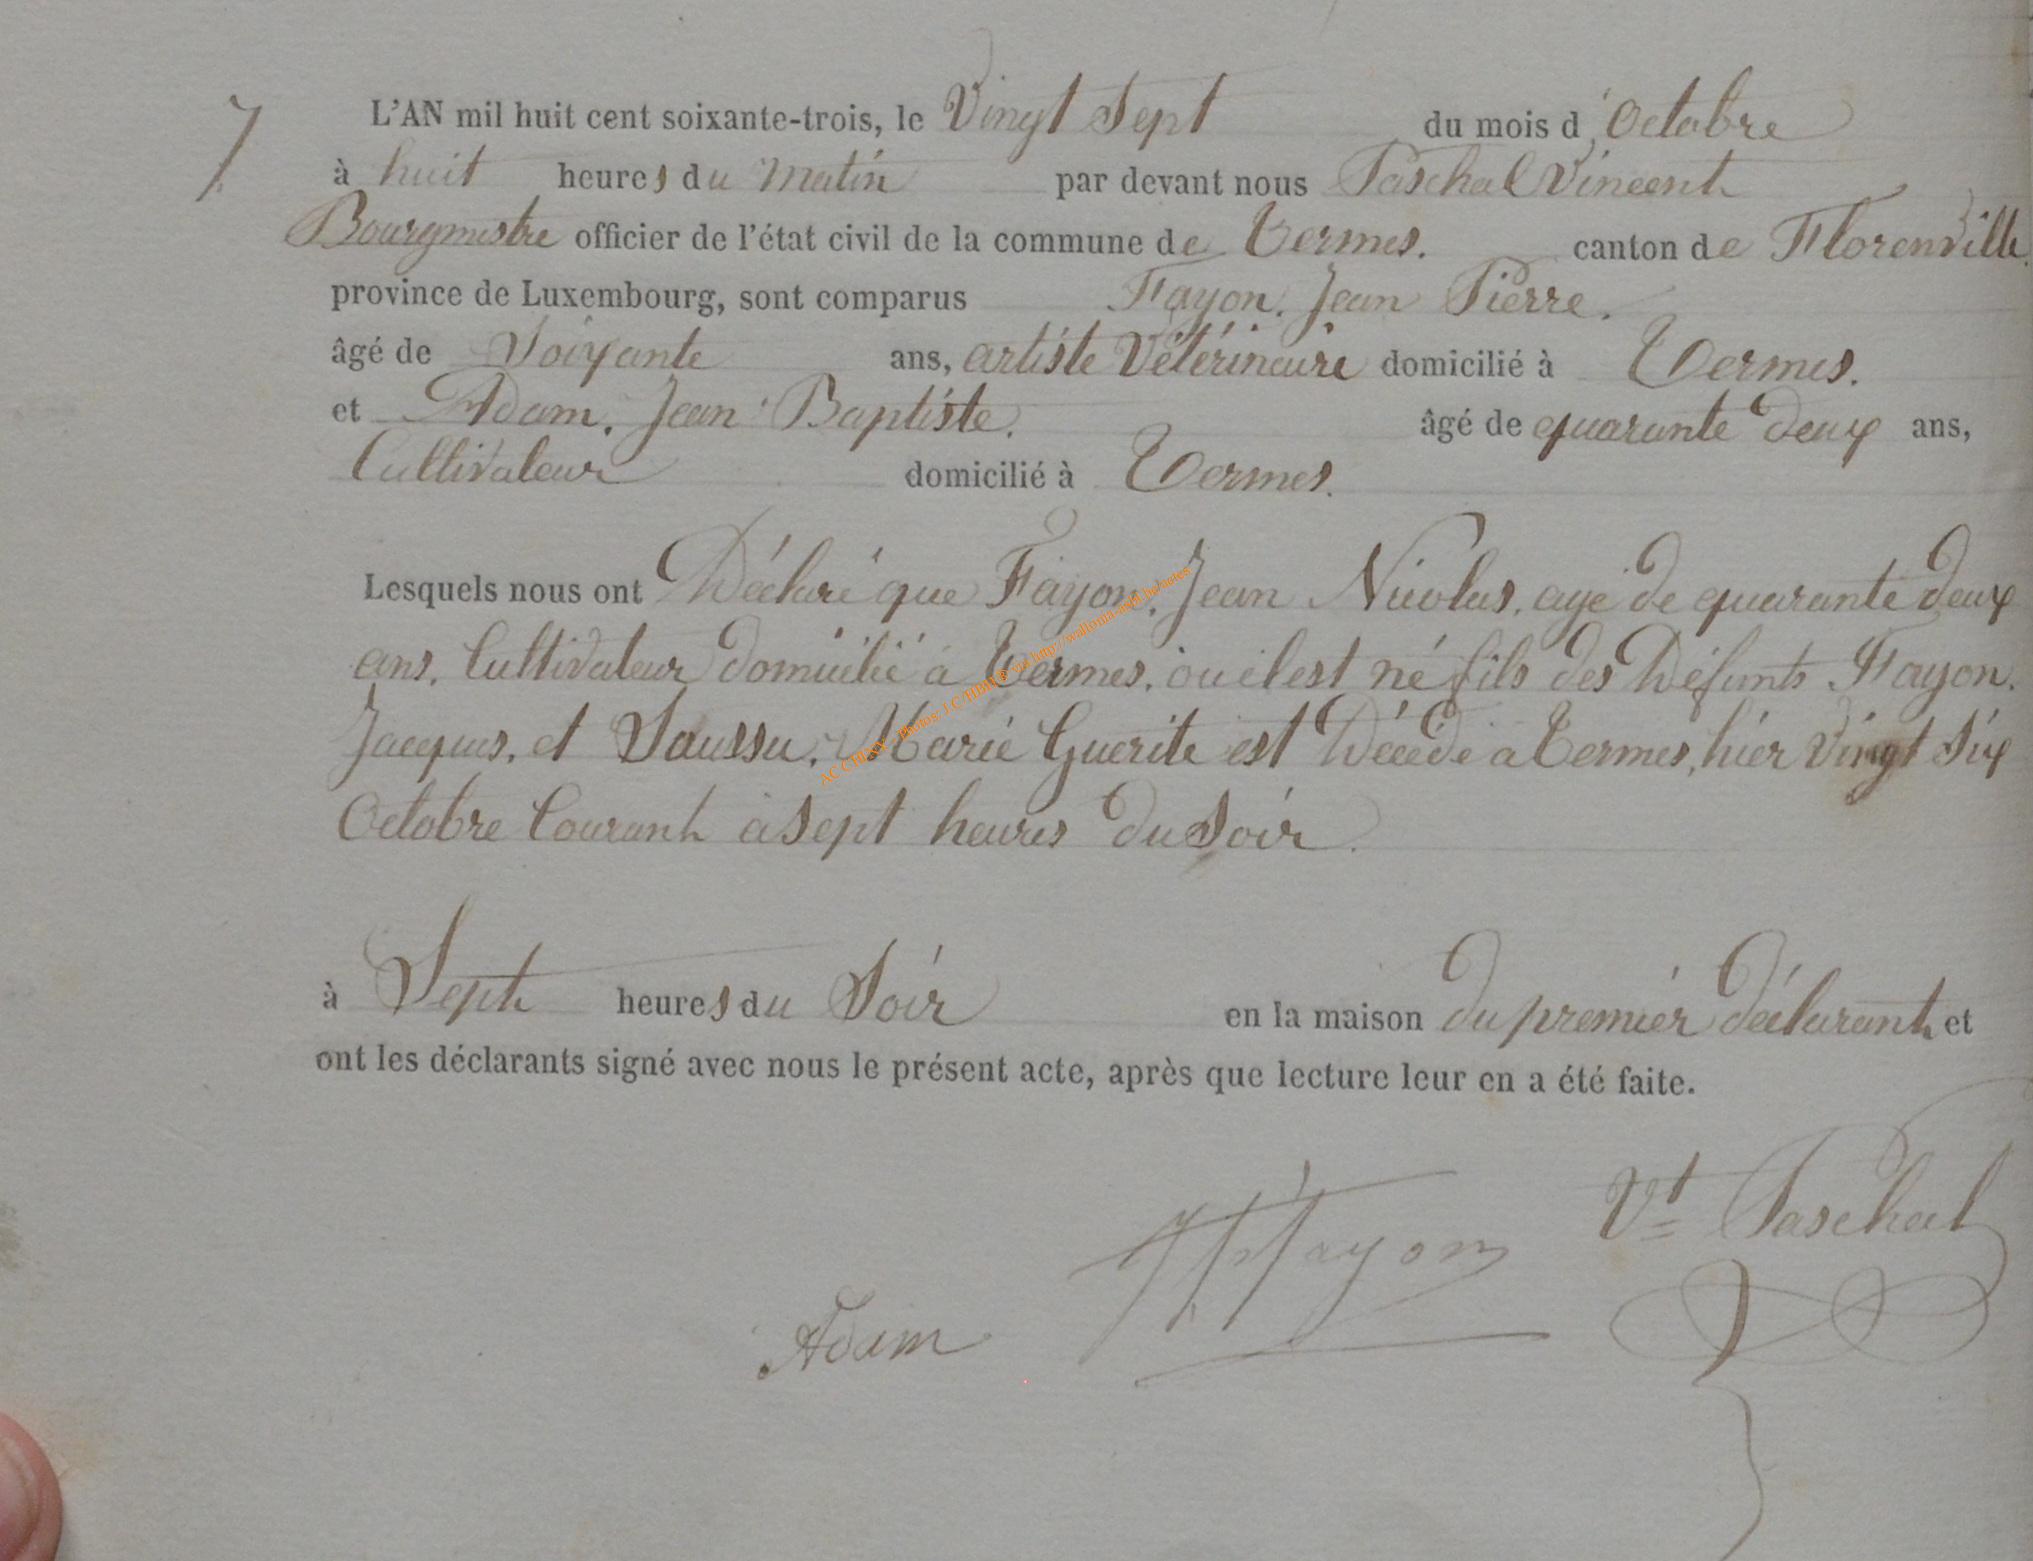 7
L'AN mil huit cent soixante-trois, le Vingt Sept du mois d'Octobre
à huit heures du matin par devant nous Paschal Vincent
Bourgmestre officier de l'état civil de la commune de Termes. canton de Florenville.
province de Luxembourg, sont comparus Fayon. Jean Pierre.
âgé de Soixante ans, artiste Vétérinaire domicilié à Termes.
et Adam. Jean Baptiste. âgé de quarante deux ans,
Cultivateur domicilié à Termes.
Lesquels nous ont Déclaré que Fayon. Jean Nicolas. agé de quarante deux
ans. Cultivateur domicilié à Termes. où il est né fils des Défunts Fayon.
Jacques. et Saussu. Marie Guerite est Décédé a Termes, hier Vingt Six
Octobre Courant à Sept heures du Soir.
à Sept heures du Soir en la maison du premier déclarant et
ont les déclarants signé avec nous le présent acte, après que lecture leur en a été faite.
Vt Paschal
JPFayon
Adam